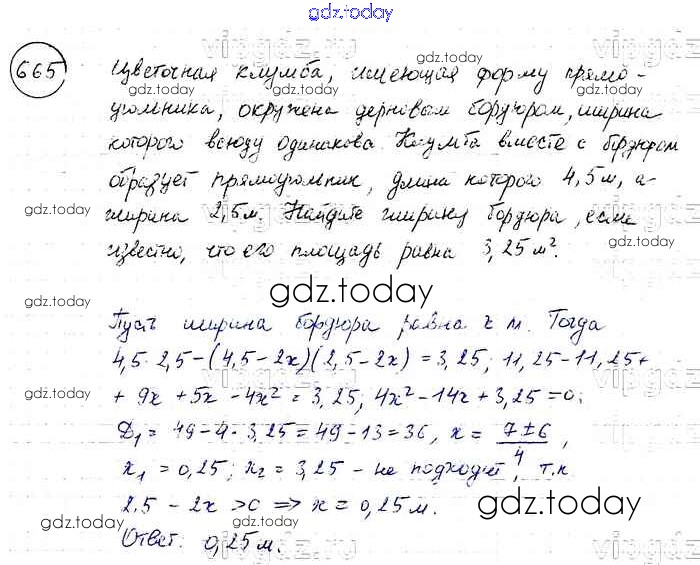 gdz.today
665 Цветочная клумба, имеющая форму прямо-
угольника, окружена дерновым бордюром, ширина
которого всюду одинакова. Клумба вместе с бордюром
образует прямоугольник, длина которого 4,5 м, а
ширина 2,5 м. Найдите ширину бордюра, если
известно, что его площадь равна 3,25 м².
Пусть ширина бордюра равна x м. Тогда
4,5 · 2,5 − (4,5 − 2x)(2,5 − 2x) = 3,25; 11,25 − 11,25 +
+ 9x + 5x − 4x² = 3,25; 4x² − 14x + 3,25 = 0;
D₁ = 49 − 4 · 3,25 = 49 − 13 = 36, x = (7 ± 6)/4,
x₁ = 0,25; x₂ = 3,25 − не подходит, т.к
2,5 − 2x > 0 ⇒ x = 0,25 м.
Ответ: 0,25 м.